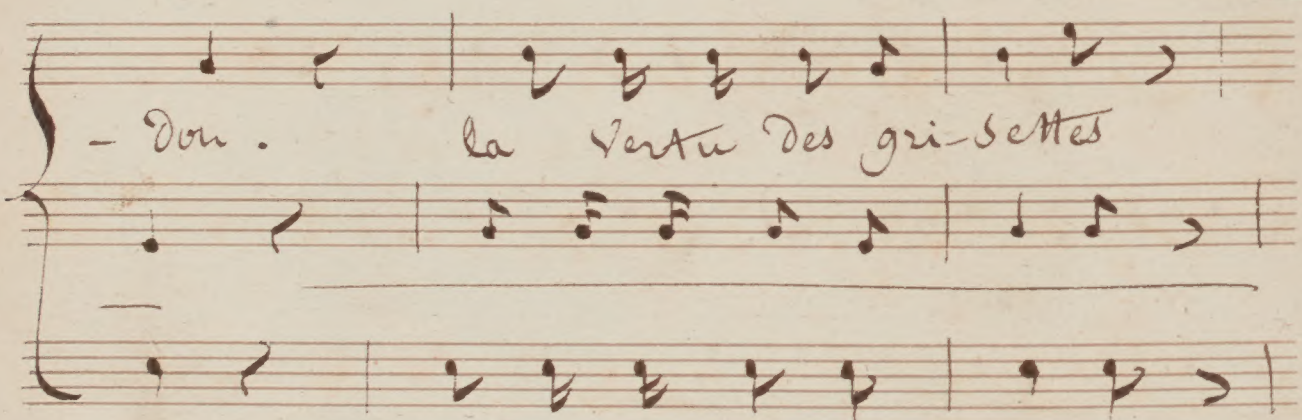 - Don. la Vertu Des gri-settes